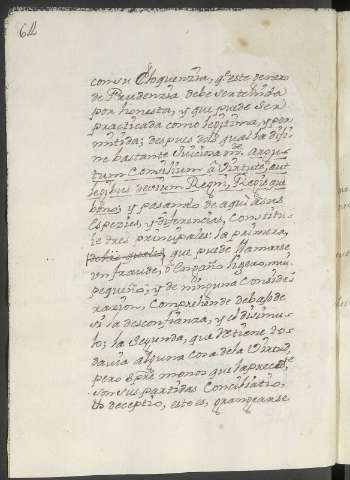 64
con su Eloquenzia, q.e este genero
de Prudenzia debe ser tenida
por honesta, y que puede ser
practicada como legitima, y per
mitida; despues de lo qual la difi
ne bastante
tum Consilium a Virtute, aut
legibus devium, Regni, Regisque
bono; y pasando de aqui a sus
Espezies, y diferencias, Constitu
ie tres principales: la primera,
que puede llamarse
un fraude, o Engaño ligero, mui
pequeño, y de ninguna conside
razion, Comprehende debajo de
si la desconfianza, y el disimu
lo; la Segunda, que retiene to
davia alguna cosa de la Virtud,
pero menos que la preced.te
son sus partidas Conciliatio,
deceptio, esto es, grangearse